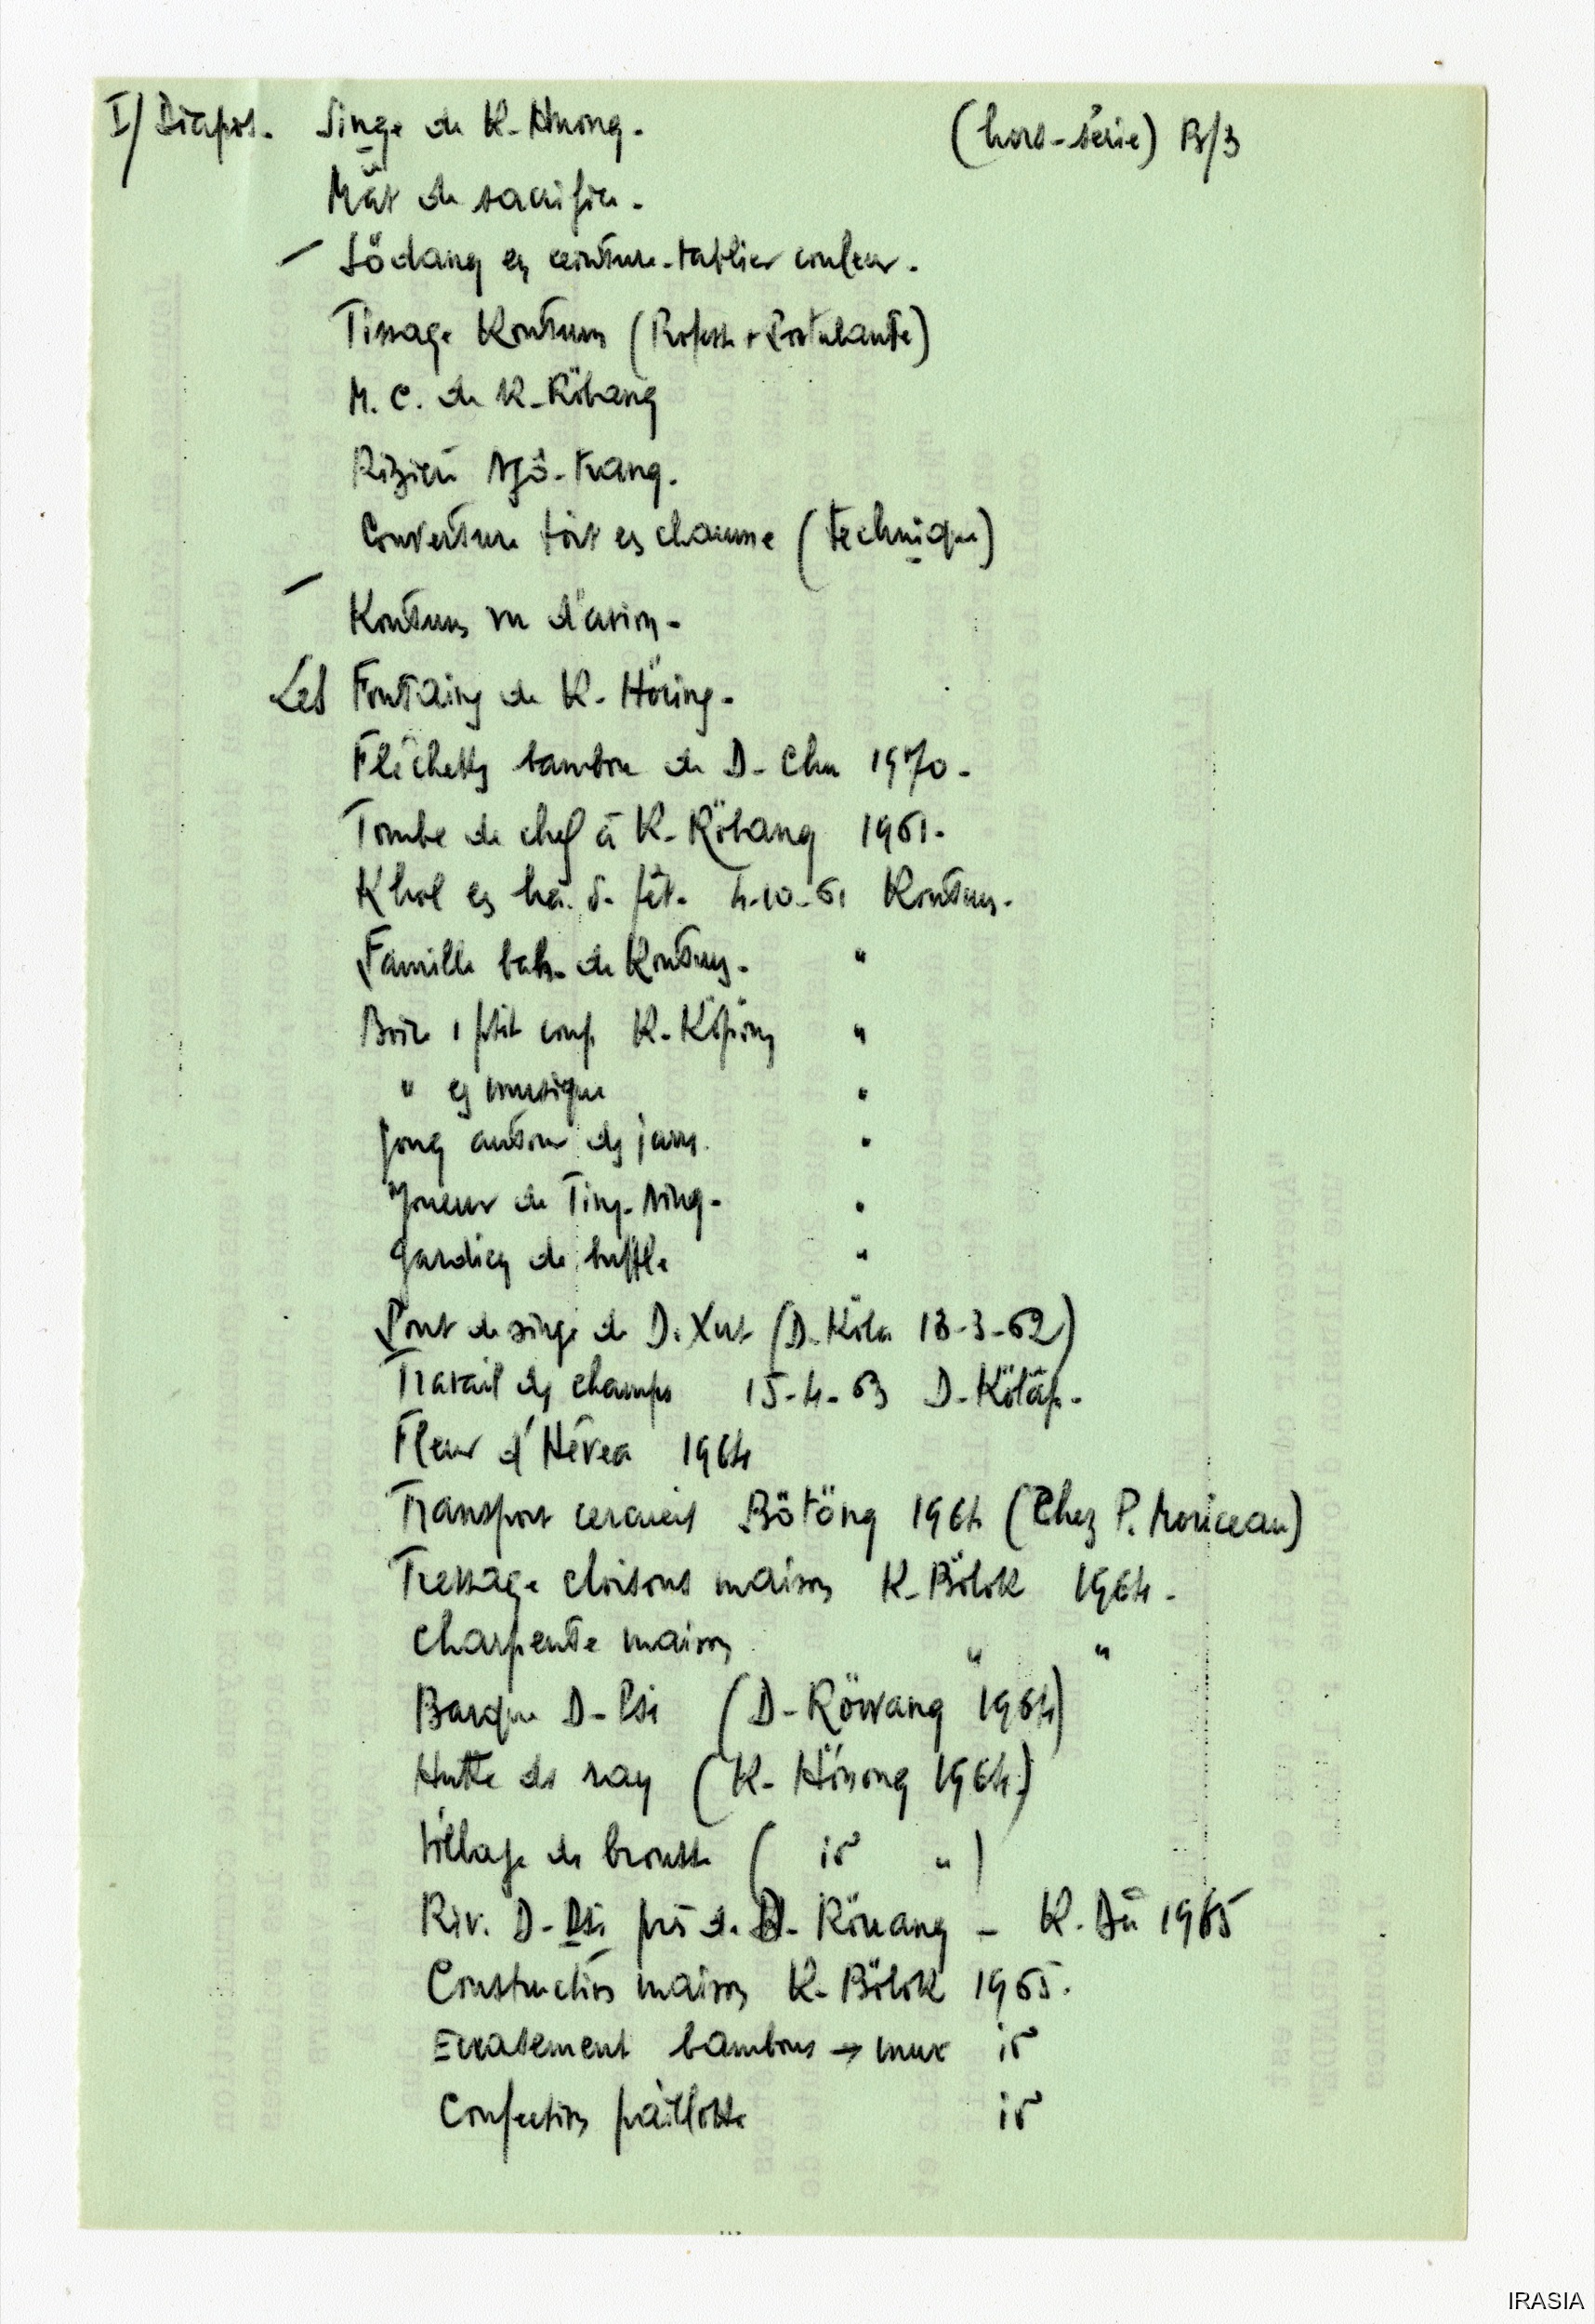 I/ Diapos. Singe de K-Hnong. (hors-série) B/3
Mât de sacrifice.
Södang en ceinture-tablier couleur.
Tissage Kontum (Rofesh + Postulante)
M. C. de K-Röbang
Rizière Ngô-Trang.
Couverture toit en chaume (technique)
Kontum vu d'avion-
Les Fontaines de K- Höring-
Fléchettes bambou de D- Chu 1970-
Tombe de chef à K-Röbang 1961.
Khol en ha. d. fêt. 4-10-61 Kontum.
Famille bah. de Kontum. "
Boire 1 ptit coup K-Köpöng "
" en musique "
gong autour des jarres. "
Joueur de Ting-ning- "
gardien de buffle "
Pont de singe de D. Xut (D-Köla 13-3-62)
Travail des champs 15-4-63 D-Kötäp-
Fleur d'Hévéa 1964
Transport cercueil Bötöng 1964 (Chez P. Moriceau)
Tressage cloisons maison K-Bölok 1964-
Charpente maison " "
Barque D-Psi (D-Röwang 1964)
Hutte de ray (K-Hönong 1964)
Village de brousse ( id " )
Riv. D-Psi près d. D-Röwang - K. Du 1965
Construction maison K-Bölok 1965.
Ecrasement bambous → mur id
Confection paillotte id
IRASIA